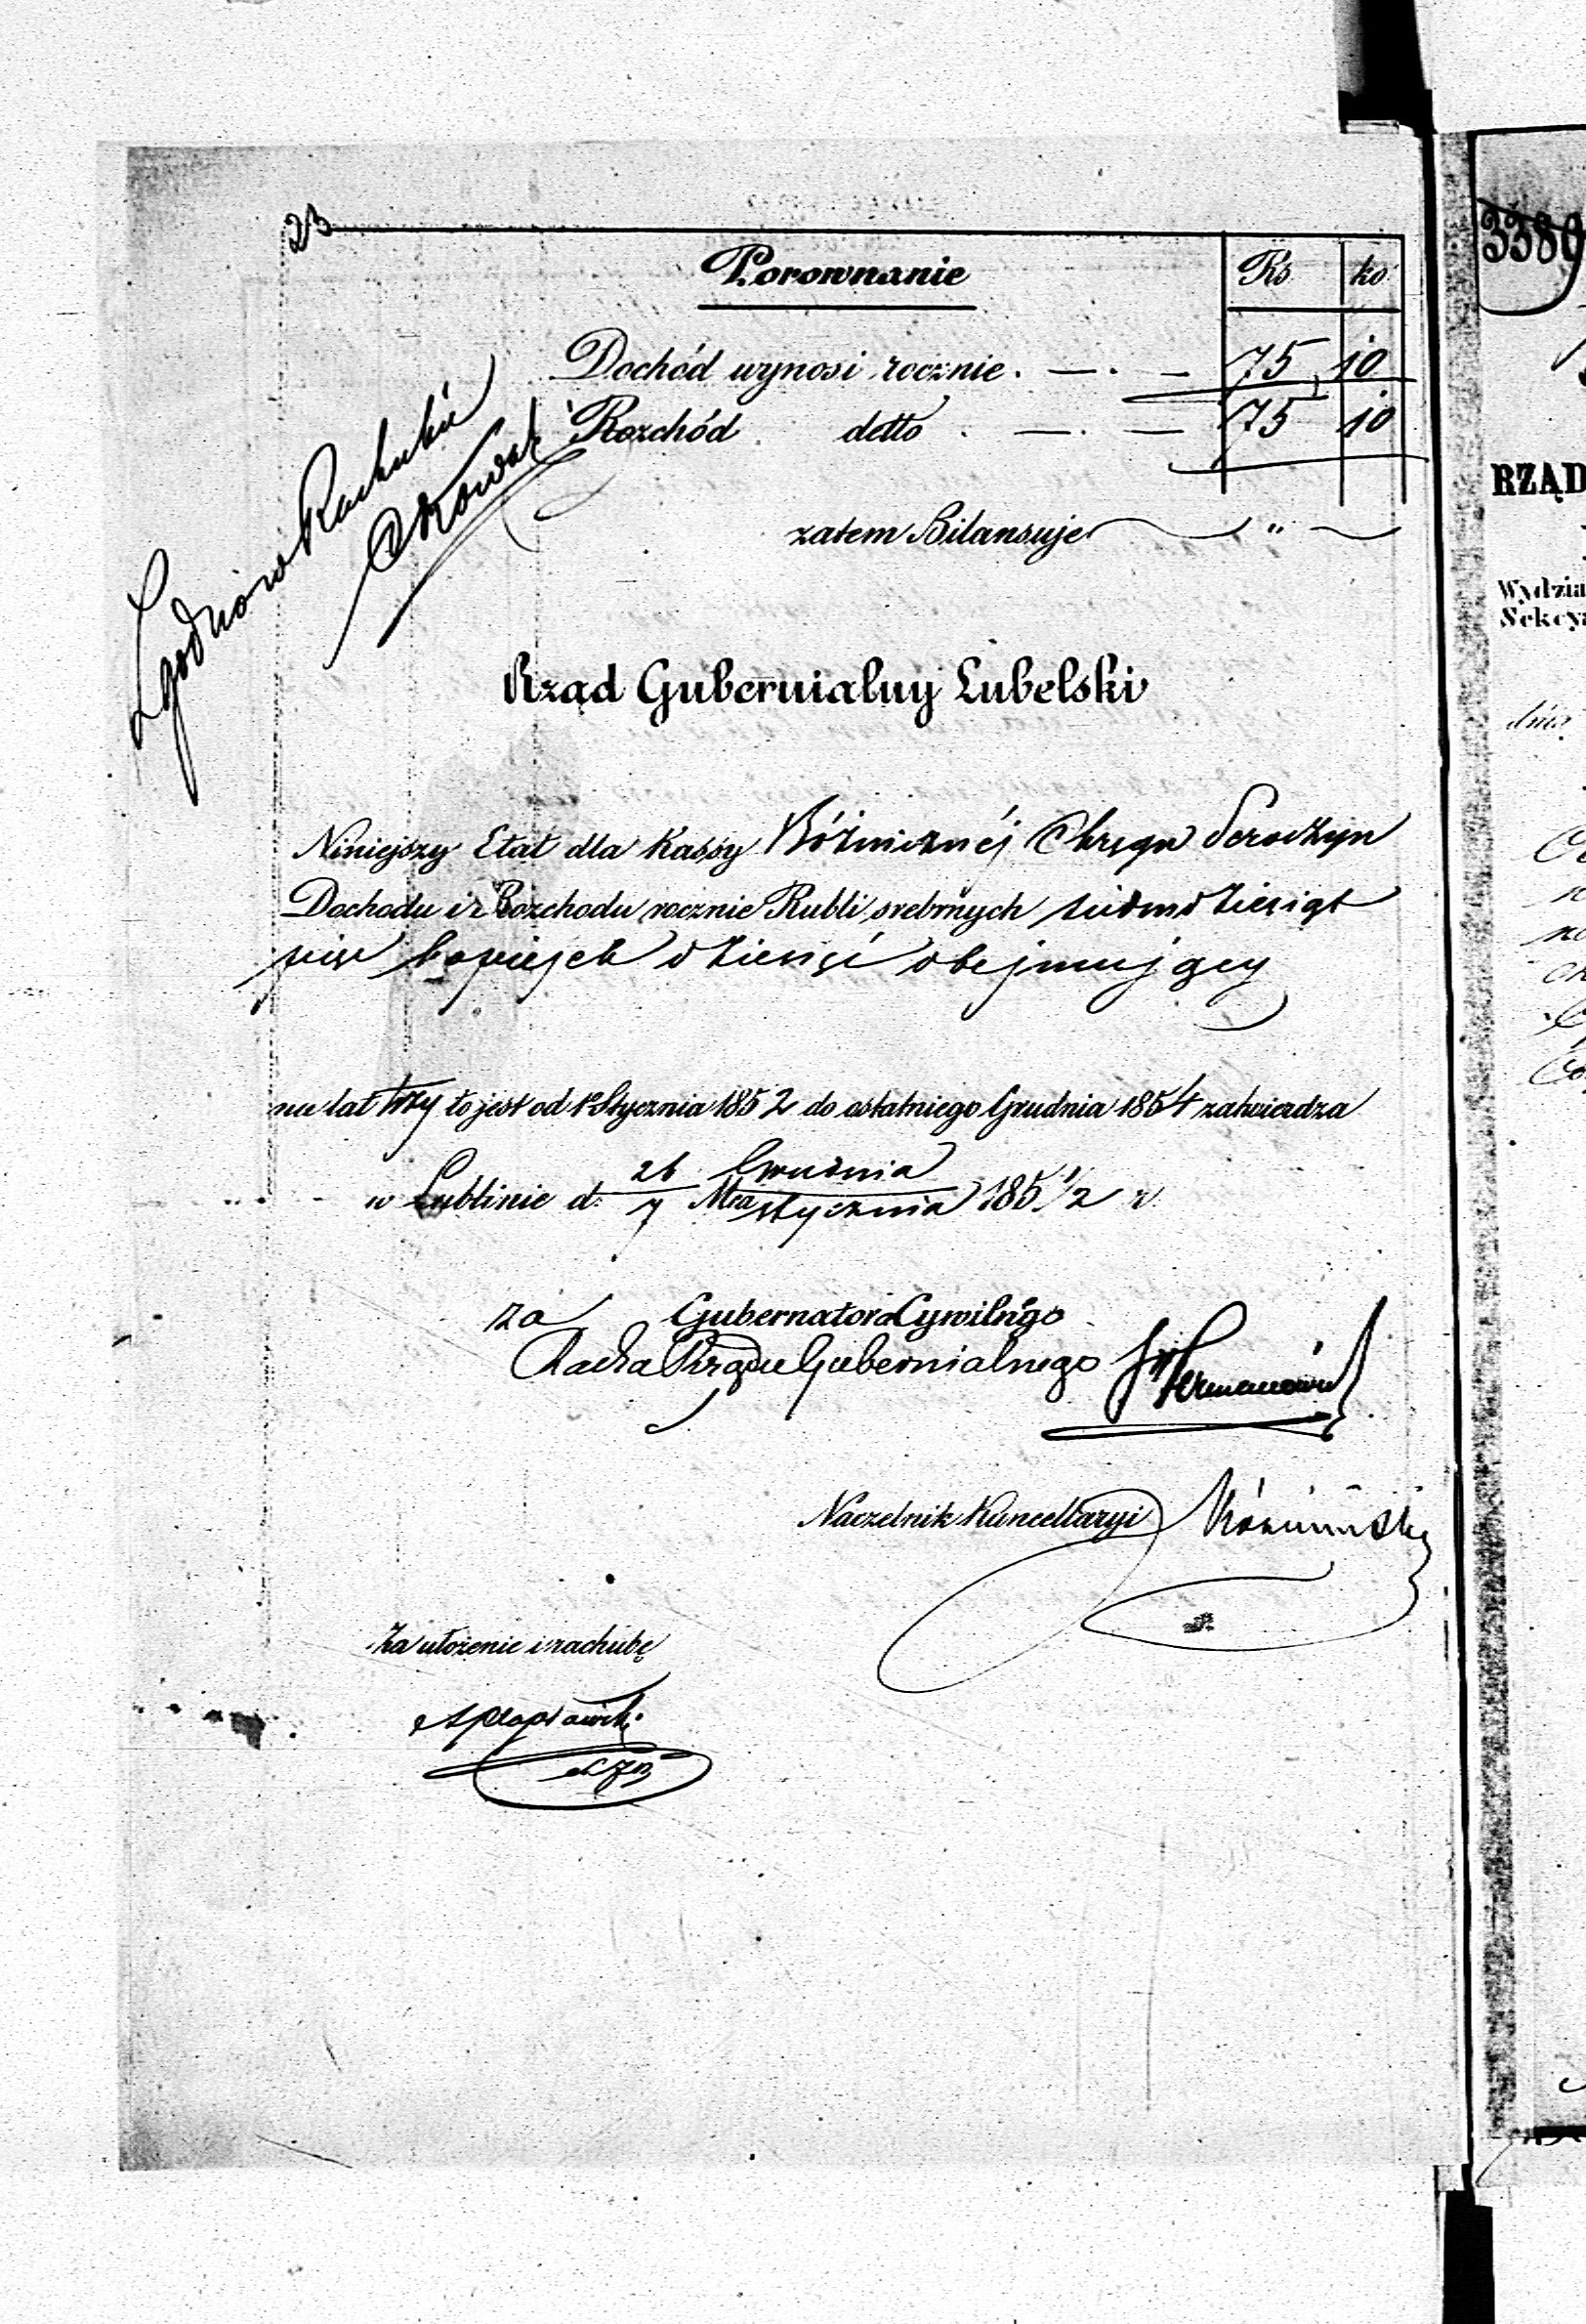 23
Porownanie
Rs ko
Dochód wynosi rocznie . — . — 75 10
Rozchód detto . — . — 75 10
zatem Bilansuje "
Zgodno w Rachubie
Rząd Gubernialny Lubelski
Niniejszy Etat dla Kassy Bóżnicznéj Okręgu Seroczyn
Dochodu i Rozchodu rocznie Rubli srebrnych siedmdziesiąt
pięć kopiejek dziesięć obejmujący
na lat trzy to jest od 1 Stycznia 1852 do ostatniego Grudnia 1854 zatwierdza
w Lublinie d. 26/7 Mca Grudnia/Stycznia 185 1/2 r.
za Gubernatora Cywilnego
Radca Rządu Gubernialnego
Naczelnik Kancellaryi
Za ułożenie i rachubę
3380
RZĄD
Wydzia
Sekcya
dnia